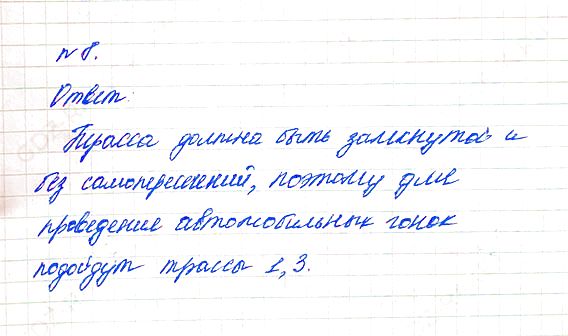 № 8.
Ответ:
Трасса должна быть замкнута и
без самопересечений, поэтому для
проведение автомобильных гонок
подойдут трассы 1, 3.